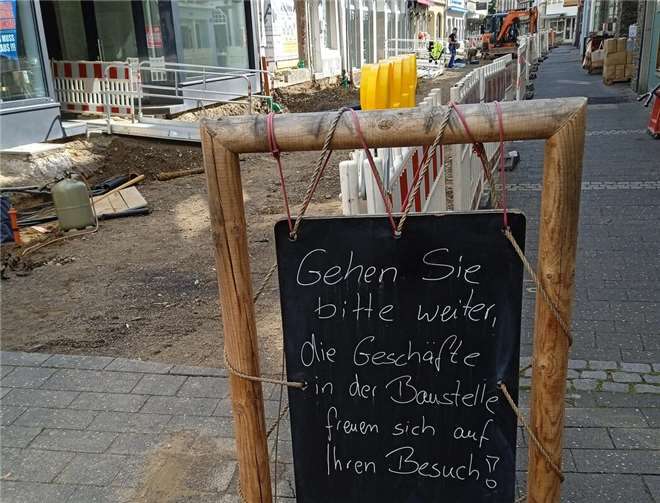 Gehen Sie
bitte weiter,
die Geschäfte
in der Baustelle
freuen sich auf
Ihren Besuch!